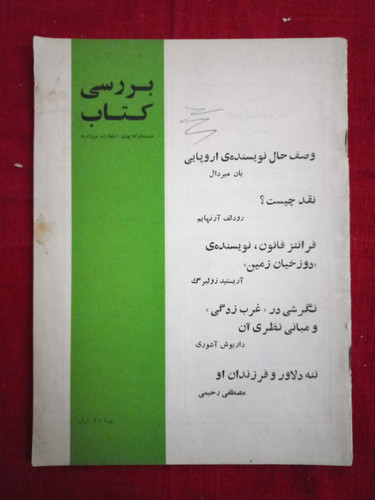 بررسی
کتاب
ضمیمه‌ی کتابهای انتشارات مروارید
وصف حال نویسنده‌ی اروپایی
یان میردال
نقد چیست؟
رودلف آرنهایم
فرانتز فانون، نویسنده‌ی
«دوزخیان زمین»
آریستید زولبرگ
نگرشی در «غرب زدگی»
و مبانی نظری آن
داریوش آشوری
ننه دلاور و فرزندان او
مصطفی رحیمی
بها ۱۰ ریال